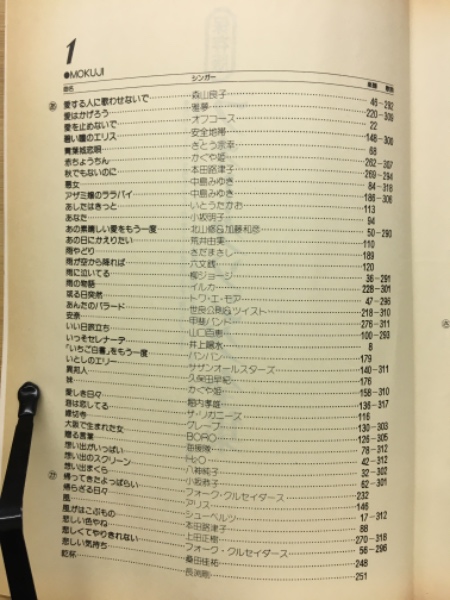 1
●MOKUJI
曲名 シンガー 楽譜 歌詞
あ 愛する人に歌わせないで 森山良子 46-292
愛はかげろう 雅夢 220-309
愛を止めないで オフコース 22
碧い瞳のエリス 安全地帯 148-300
青葉城恋唄 さとう宗幸 68
赤ちょうちん かぐや姫 262-307
秋でもないのに 本田路津子 269-294
悪女 中島みゆき 84-318
アザミ嬢のララバイ 中島みゆき 186-308
あしたはきっと いとうたかお 113
あなた 小坂明子 94
あの素晴しい愛をもう一度 北山修&加藤和彦 50-290
あの日にかえりたい 荒井由実 110
雨やどり さだまさし 189
雨が空から降れば 六文銭 120
雨に泣いてる 柳ジョージ 36-291
雨の物語 イルカ 228-301
或る日突然 トワ・エ・モア 47-296
あんたのバラード 世良公則&ツイスト 218-310
安奈 甲斐バンド 276-311
いい日旅立ち 山口百恵 100-293
いっそセレナーデ 井上陽水 8
「いちご白書」をもう一度 バンバン 179
いとしのエリー サザンオールスターズ 140-311
異邦人 久保田早紀 176
妹 かぐや姫 158-310
愛しき日々 堀内孝雄 136-317
海は恋してる ザ・リガニーズ 116
縁切寺 グレープ 130-303
大阪で生まれた女 BORO 126-305
贈る言葉 海援隊 78-312
想い出がいっぱい H₂O 42-312
想い出のスクリーン 八神純子 32-302
想い出まくら 小坂恭子 62-301
か 帰ってきたよっぱらい フォーク・クルセイダーズ 232
帰らざる日々 アリス 146
風 シューベルツ 17-312
風がはこぶもの 本田路津子 88
悲しい色やね 上田正樹 270-318
悲しくてやりきれない フォーク・クルセイダーズ 56-296
悲しい気持ち 桑田佳祐 248
乾杯 長渕剛 251